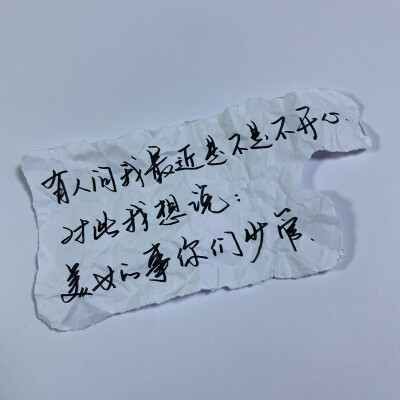 有人问我最近是不是不开心.
对此我想说:
美女的事你们少管.